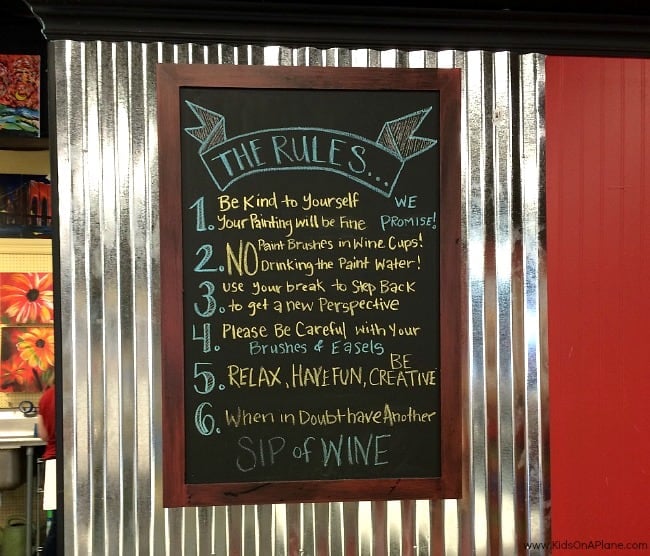 THE RULES...
1. Be Kind to Yourself
Your Painting will be Fine
WE
PROMISE!
2. NO Paint Brushes in Wine Cups!
Drinking the Paint Water!
3. use your break to Step Back
to get a new Perspective
4. Please Be Careful with Your
Brushes & Easels
5. RELAX, HAVE FUN, BE
CREATIVE
6. When in Doubt have Another
SIP of WINE
www.KidsOnAPlane.com